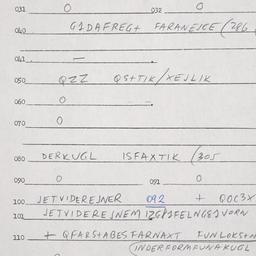 031 0 032 0
040 G1DAFREG+ FARANEJCE (286
041 —
050 QZZ QS+TIK/XEJLIK
060 0
070 0
080 DERKUGL ISFAXTIK (305
090 0 091 0
100 JETVIDEREJNER 092 + QOC3X
101 JETVIDEREJNEM
110 + QFARS+ABESFARNAXT FUNLOKS+N
(INDERFORMFUNAKUGL